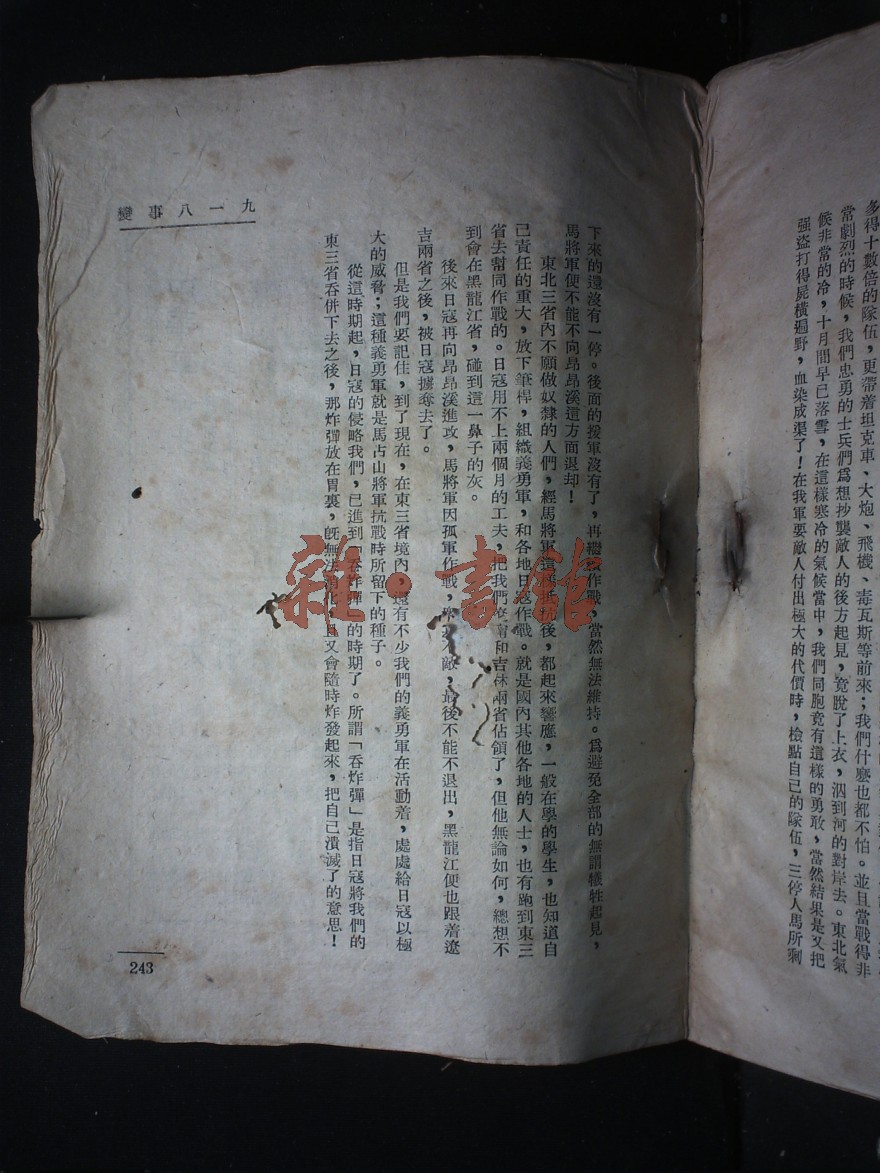 多得十數倍的隊伍，更帶着坦克車、大炮、飛機、毒瓦斯等前來；我們什麼也都不怕。並且當戰得非
常劇烈的時候，我們忠勇的士兵們爲想抄襲敵人的後方起見，竟脫了上衣，泅到河的對岸去。東北氣
候非常的冷，十月間早已落雪，在這樣寒冷的氣候當中，我們同胞竟有這樣的勇敢，當然結果是又把
强盜打得屍橫遍野，血染成渠了！在我軍要敵人付出極大的代價時，檢點自己的隊伍，三停人馬所剩
下來的還沒有一停。後面的援軍沒有了，再繼續作戰，當然無法維持。爲避免全部的無謂犧牲起見，
馬將軍便不能不向昂昂溪這方面退却！
東北三省內不願做奴隸的人們，經馬將軍這抵抗後，都起來響應，一般在學的學生，也知道自
己責任的重大，放下筆桿，組織義勇軍，和各地日寇作戰。就是國內其他各地的人士，也有跑到東三
省去幫同作戰的。日寇用不上兩個月的工夫，把我們和吉林兩省佔領了，但他無論如何，總想不
到會在黑龍江省，碰到這一鼻子的灰。
後來日寇再向昂昂溪進攻，馬將軍因孤軍作戰，敵，最後不能不退出，黑龍江便也跟着遼
吉兩省之後，被日寇擄奪去了。
但是我們要記住，到了現在，在東三省境內，還有不少我們的義勇軍在活動着，處處給日寇以極
大的威脅；這種義勇軍就是馬占山將軍抗戰時所留下的種子。
從這時期起，日寇的侵略我們，已進到「吞炸彈」的時期了。所謂「吞炸彈」是指日寇將我們的
東三省吞併下去之後，那炸彈放在胃裏，旣無法，且又會隨時炸發起來，把自己潰滅了的意思！
九一八事變
243
雜·書館